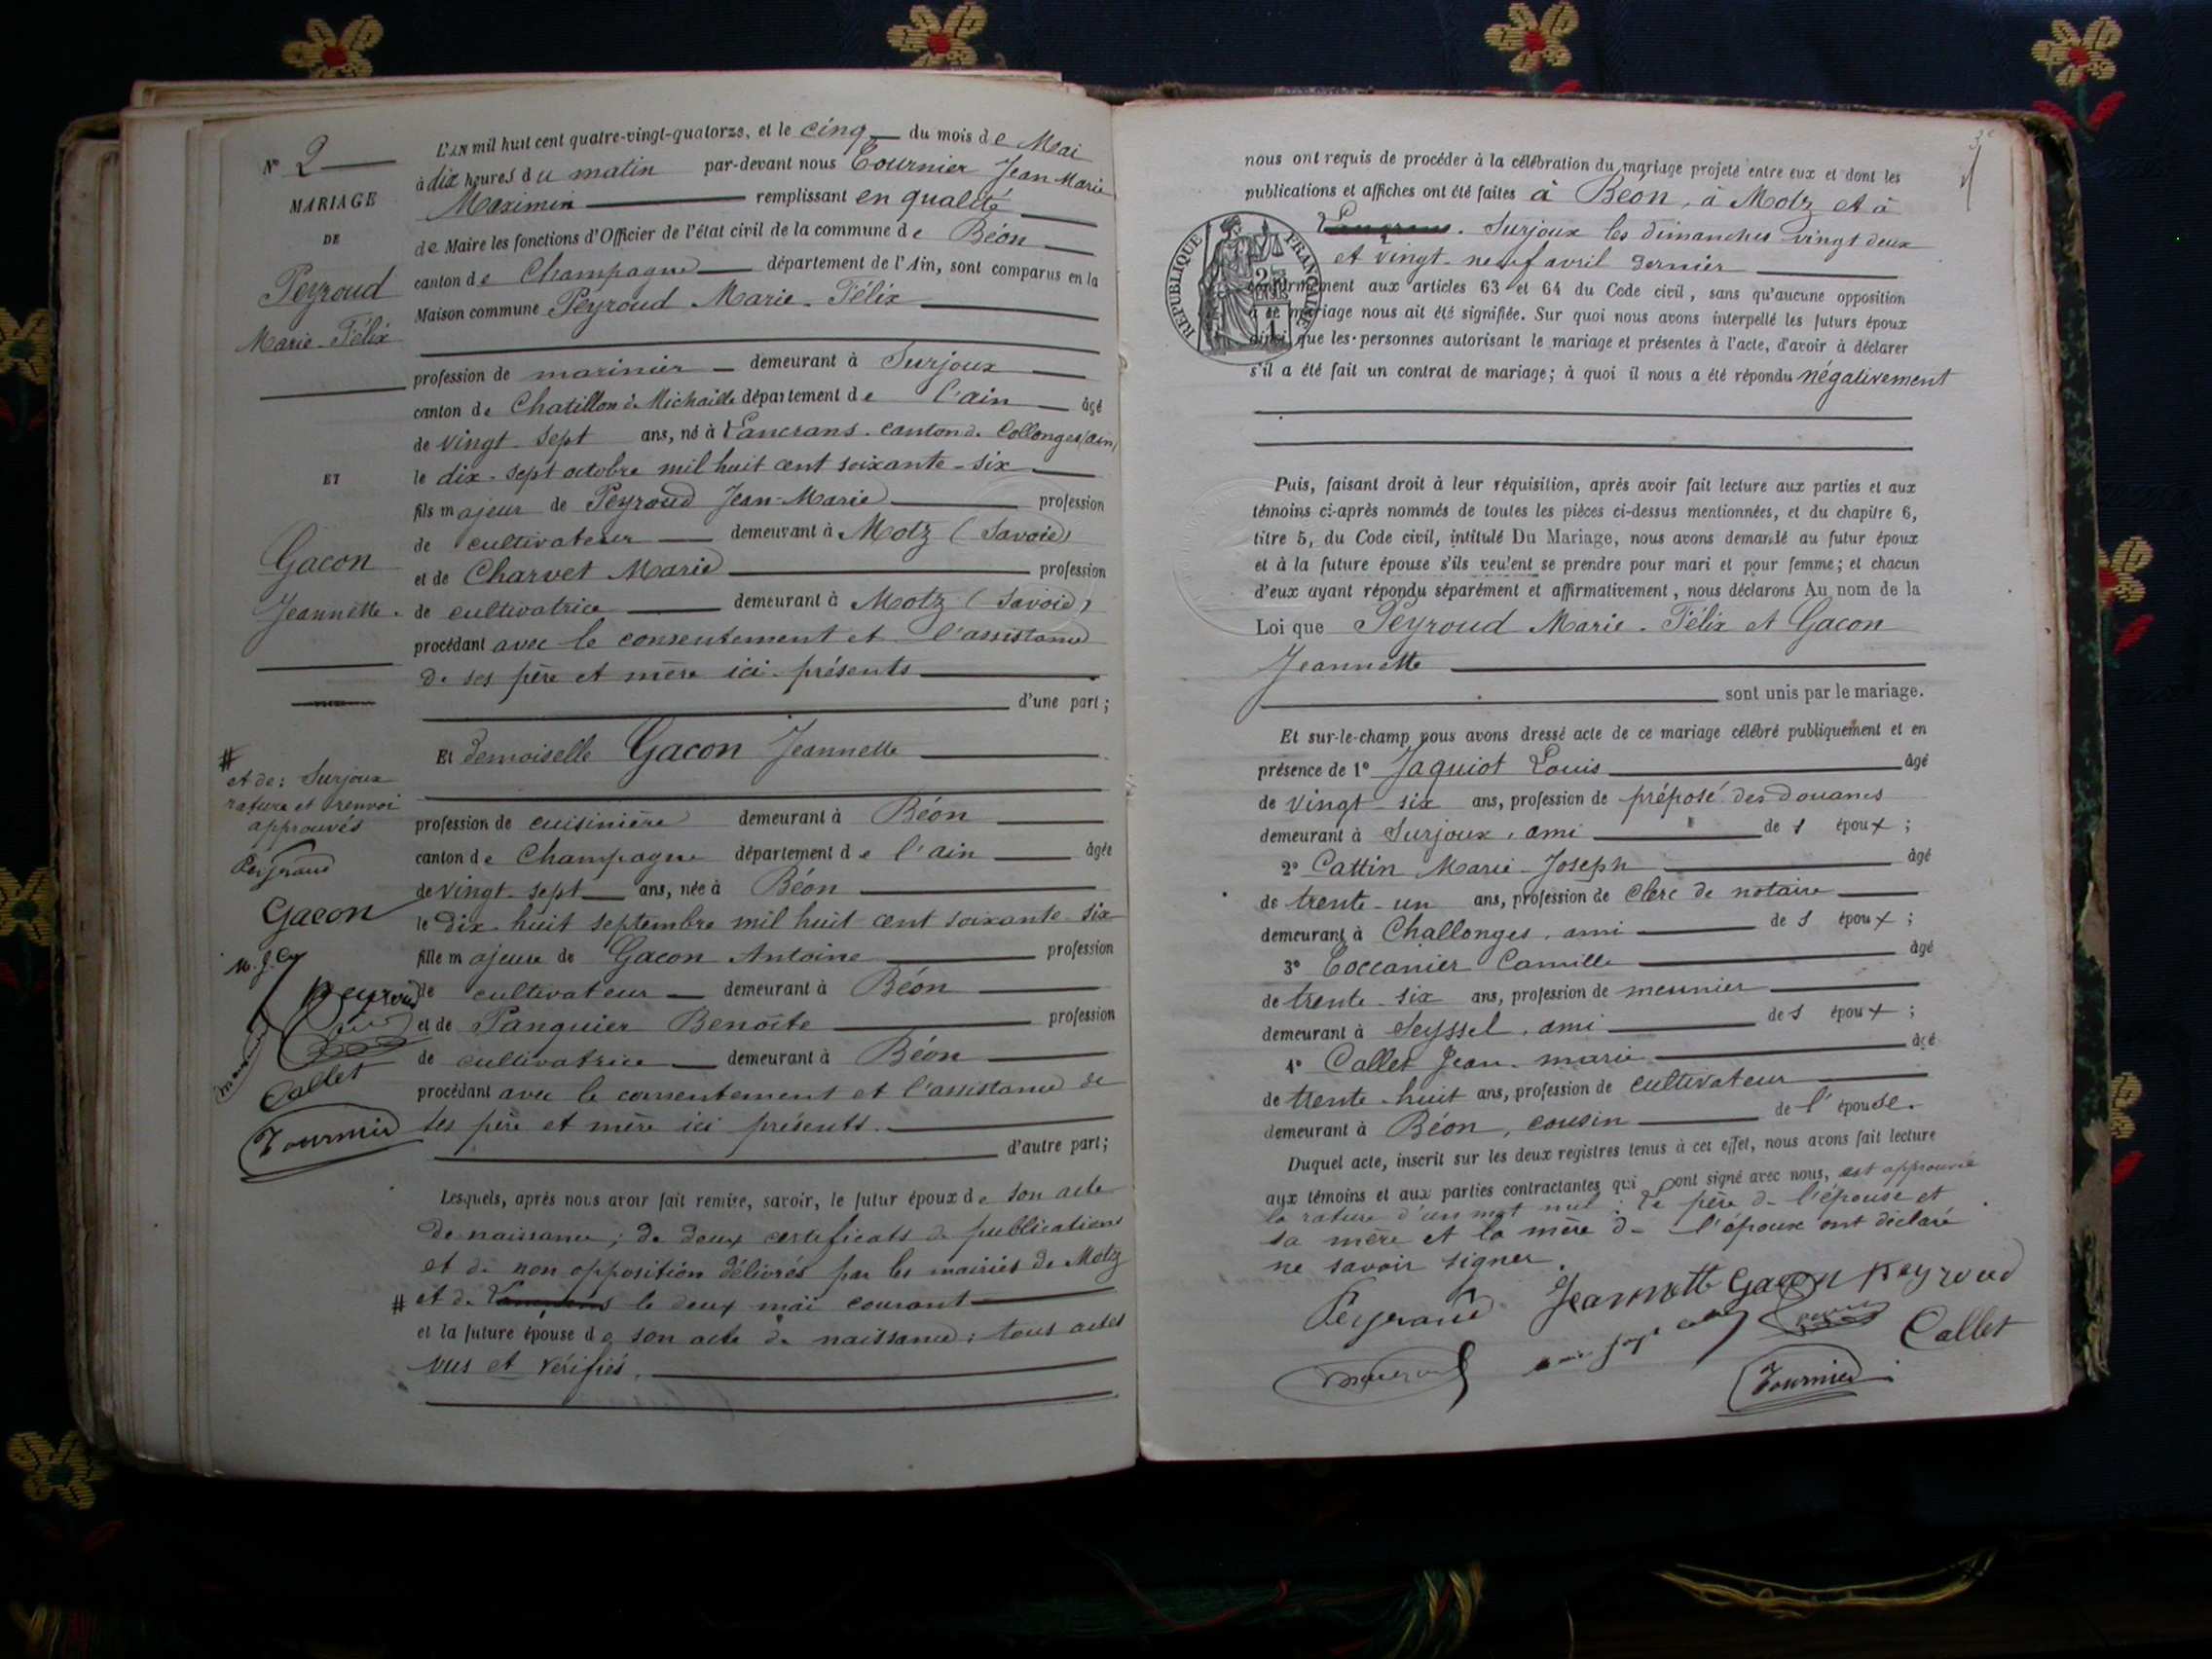 N° 2
MARIAGE
DE
Peyroud
Marie-Félix
ET
Gacon
Jeannette.
#
et de: Surjoux
rature et renvoi
approuvés
Peyraud
Gacon
M. J. C
Peyroud
Callet
Tournier
L'AN mil huit cent quatre-vingt-quatorze, et le cinq du mois de Mai
à dix heures du matin par-devant nous Tournier Jean Marie
Maximin remplissant en qualité
de Maire les fonctions d'Officier de l'état civil de la commune de Béon
canton de Champagne département de l'Ain, sont comparus en la
Maison commune Peyroud Marie-Félix
profession de marinier demeurant à Surjoux
canton de Chatillon de Michaille département de l'ain âgé
de vingt-sept ans, né à Lancrans. canton de Collonges (ain)
le dix-sept octobre mil huit cent soixante-six
fils majeur de Peyroud Jean-Marie profession
de cultivateur demeurant à Motz (Savoie)
et de Charvet Marie profession
de cultivatrice demeurant à Motz (Savoie)
procédant avec le consentement et l'assistance
de ses père et mère ici présents
d'une part;
Et demoiselle Gacon Jeannette
profession de cuisinière demeurant à Béon
canton de Champagne département de l'ain âgée
de vingt-sept ans, née à Béon
le dix-huit septembre mil huit cent soixante-six
fille majeure de Gacon Antoine profession
de cultivateur demeurant à Béon
et de Panguier Benoîte profession
de cultivatrice demeurant à Béon
procédant avec le consentement et l'assistance de
ses père et mère ici présents.
d'autre part;
Lesquels, après nous avoir fait remise, savoir, le futur époux de son acte
de naissance; de deux certificats de publications
et de non opposition délivrés par les mairies de Motz
# et de Lancrans le deux mai courant
et la future épouse de son acte de naissance; tous actes
vus et vérifiés.
nous ont requis de procéder à la célébration du mariage projeté entre eux et dont les
publications et affiches ont été faites à Béon, à Motz et à
Lancrans. Surjoux les dimanches vingt deux
et vingt-neuf avril dernier
RÉPUBLIQUE FRANÇAISE
conformément aux articles 63 et 64 du Code civil, sans qu'aucune opposition
à ce mariage nous ait été signifiée. Sur quoi nous avons interpellé les futurs époux
ainsi que les personnes autorisant le mariage et présentes à l'acte, d'avoir à déclarer
s'il a été fait un contrat de mariage; à quoi il nous a été répondu négativement
Puis, faisant droit à leur réquisition, après avoir fait lecture aux parties et aux
témoins ci-après nommés de toutes les pièces ci-dessus mentionnées, et du chapitre 6,
titre 5, du Code civil, intitulé Du Mariage, nous avons demandé au futur époux
et à la future épouse s'ils veulent se prendre pour mari et pour femme; et chacun
d'eux ayant répondu séparément et affirmativement, nous déclarons Au nom de la
Loi que Peyroud Marie-Félix et Gacon
Jeannette
sont unis par le mariage.
Et sur-le-champ nous avons dressé acte de ce mariage célébré publiquement et en
présence de 1° Jaquiot Louis âgé
de vingt-six ans, profession de préposé des douanes
demeurant à Surjoux, ami de l'époux;
2° Cattin Marie-Joseph âgé
de trente-un ans, profession de clerc de notaire
demeurant à Challonges, ami de l'époux;
3° Toccanier Camille âgé
de trente-six ans, profession de meunier
demeurant à Seyssel, ami de l'époux;
4° Callet Jean-marie âgé
de trente-huit ans, profession de cultivateur
demeurant à Béon, cousin de l'épouse.
Duquel acte, inscrit sur les deux registres tenus à cet effet, nous avons fait lecture
aux témoins et aux parties contractantes qui ont signé avec nous, est approuvée
la rature d'un mot nul. le père de l'épouse et
sa mère et la mère de l'époux ont déclaré
ne savoir signer.
Peyraud Jeannette Gacon Peyroud
Callet
Tournier